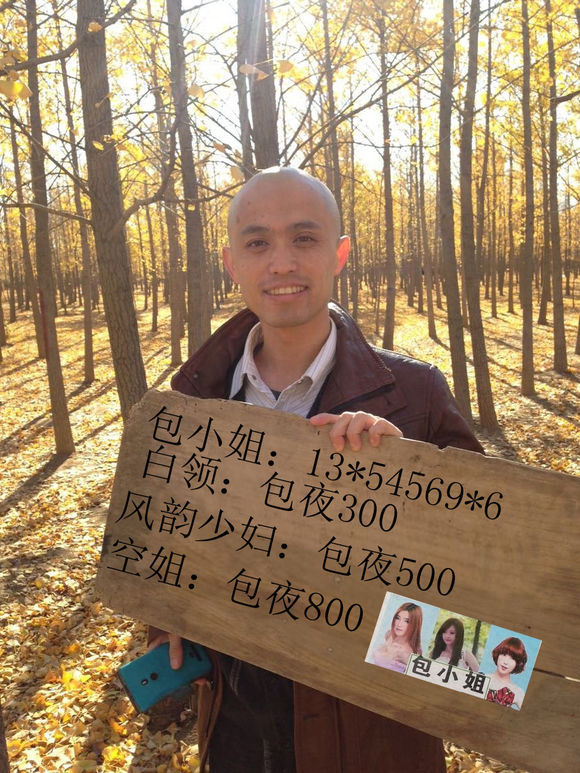 包小姐：13*54569*6
白领：包夜300
风韵少妇：包夜500
空姐：包夜800
包小姐